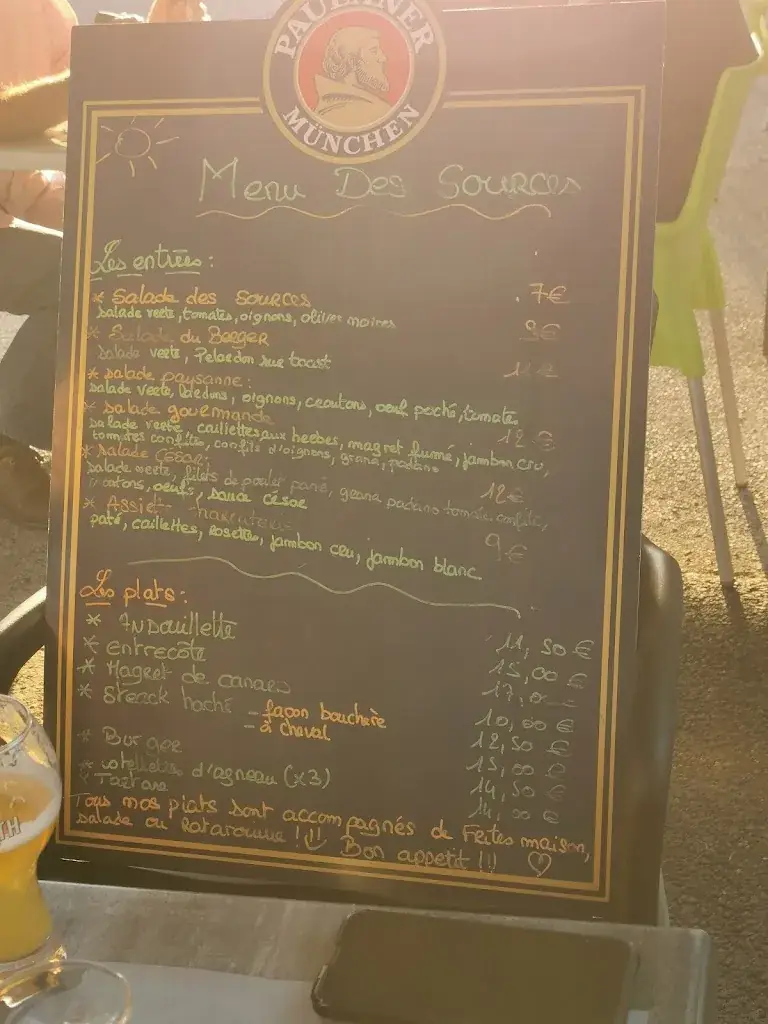 PAULANER
MÜNCHEN
Menu Des Sources
Les entrées :
* Salade des sources 7€
Salade verte, tomates, oignons, olives noires
* Salade du Berger 9€
Salade verte, Pelardon sur toast
* Salade paysanne : 11€
Salade verte, lardons, oignons, croutons, oeuf poché, tomates
* Salade gourmande 12€
Salade verte, caillettes aux herbes, magret fumé, jambon cru,
tomates confites, confits d'oignons, grana, padano
* Salade César : 12€
Salade verte, filets de poulet pané, grana padano tomate confite,
croutons, oeufs, sauce césar
* Assiet 9€
paté, caillettes, Rosette, jambon cru, jambon blanc
Les plats :
* Andouillette 11,50€
* Entrecôte 15,00€
* Magret de canard 17,
* Steack haché - façon bouchère 10,00€
- à cheval 12,50€
* Burger 15,00€
* cotelettes d'agneau (x3) 14,50€
* Tartare 14,00€
Tous nos plats sont accompagnés de Frites maison,
salade ou Ratatouille !!! Bon appetit !!!
TH